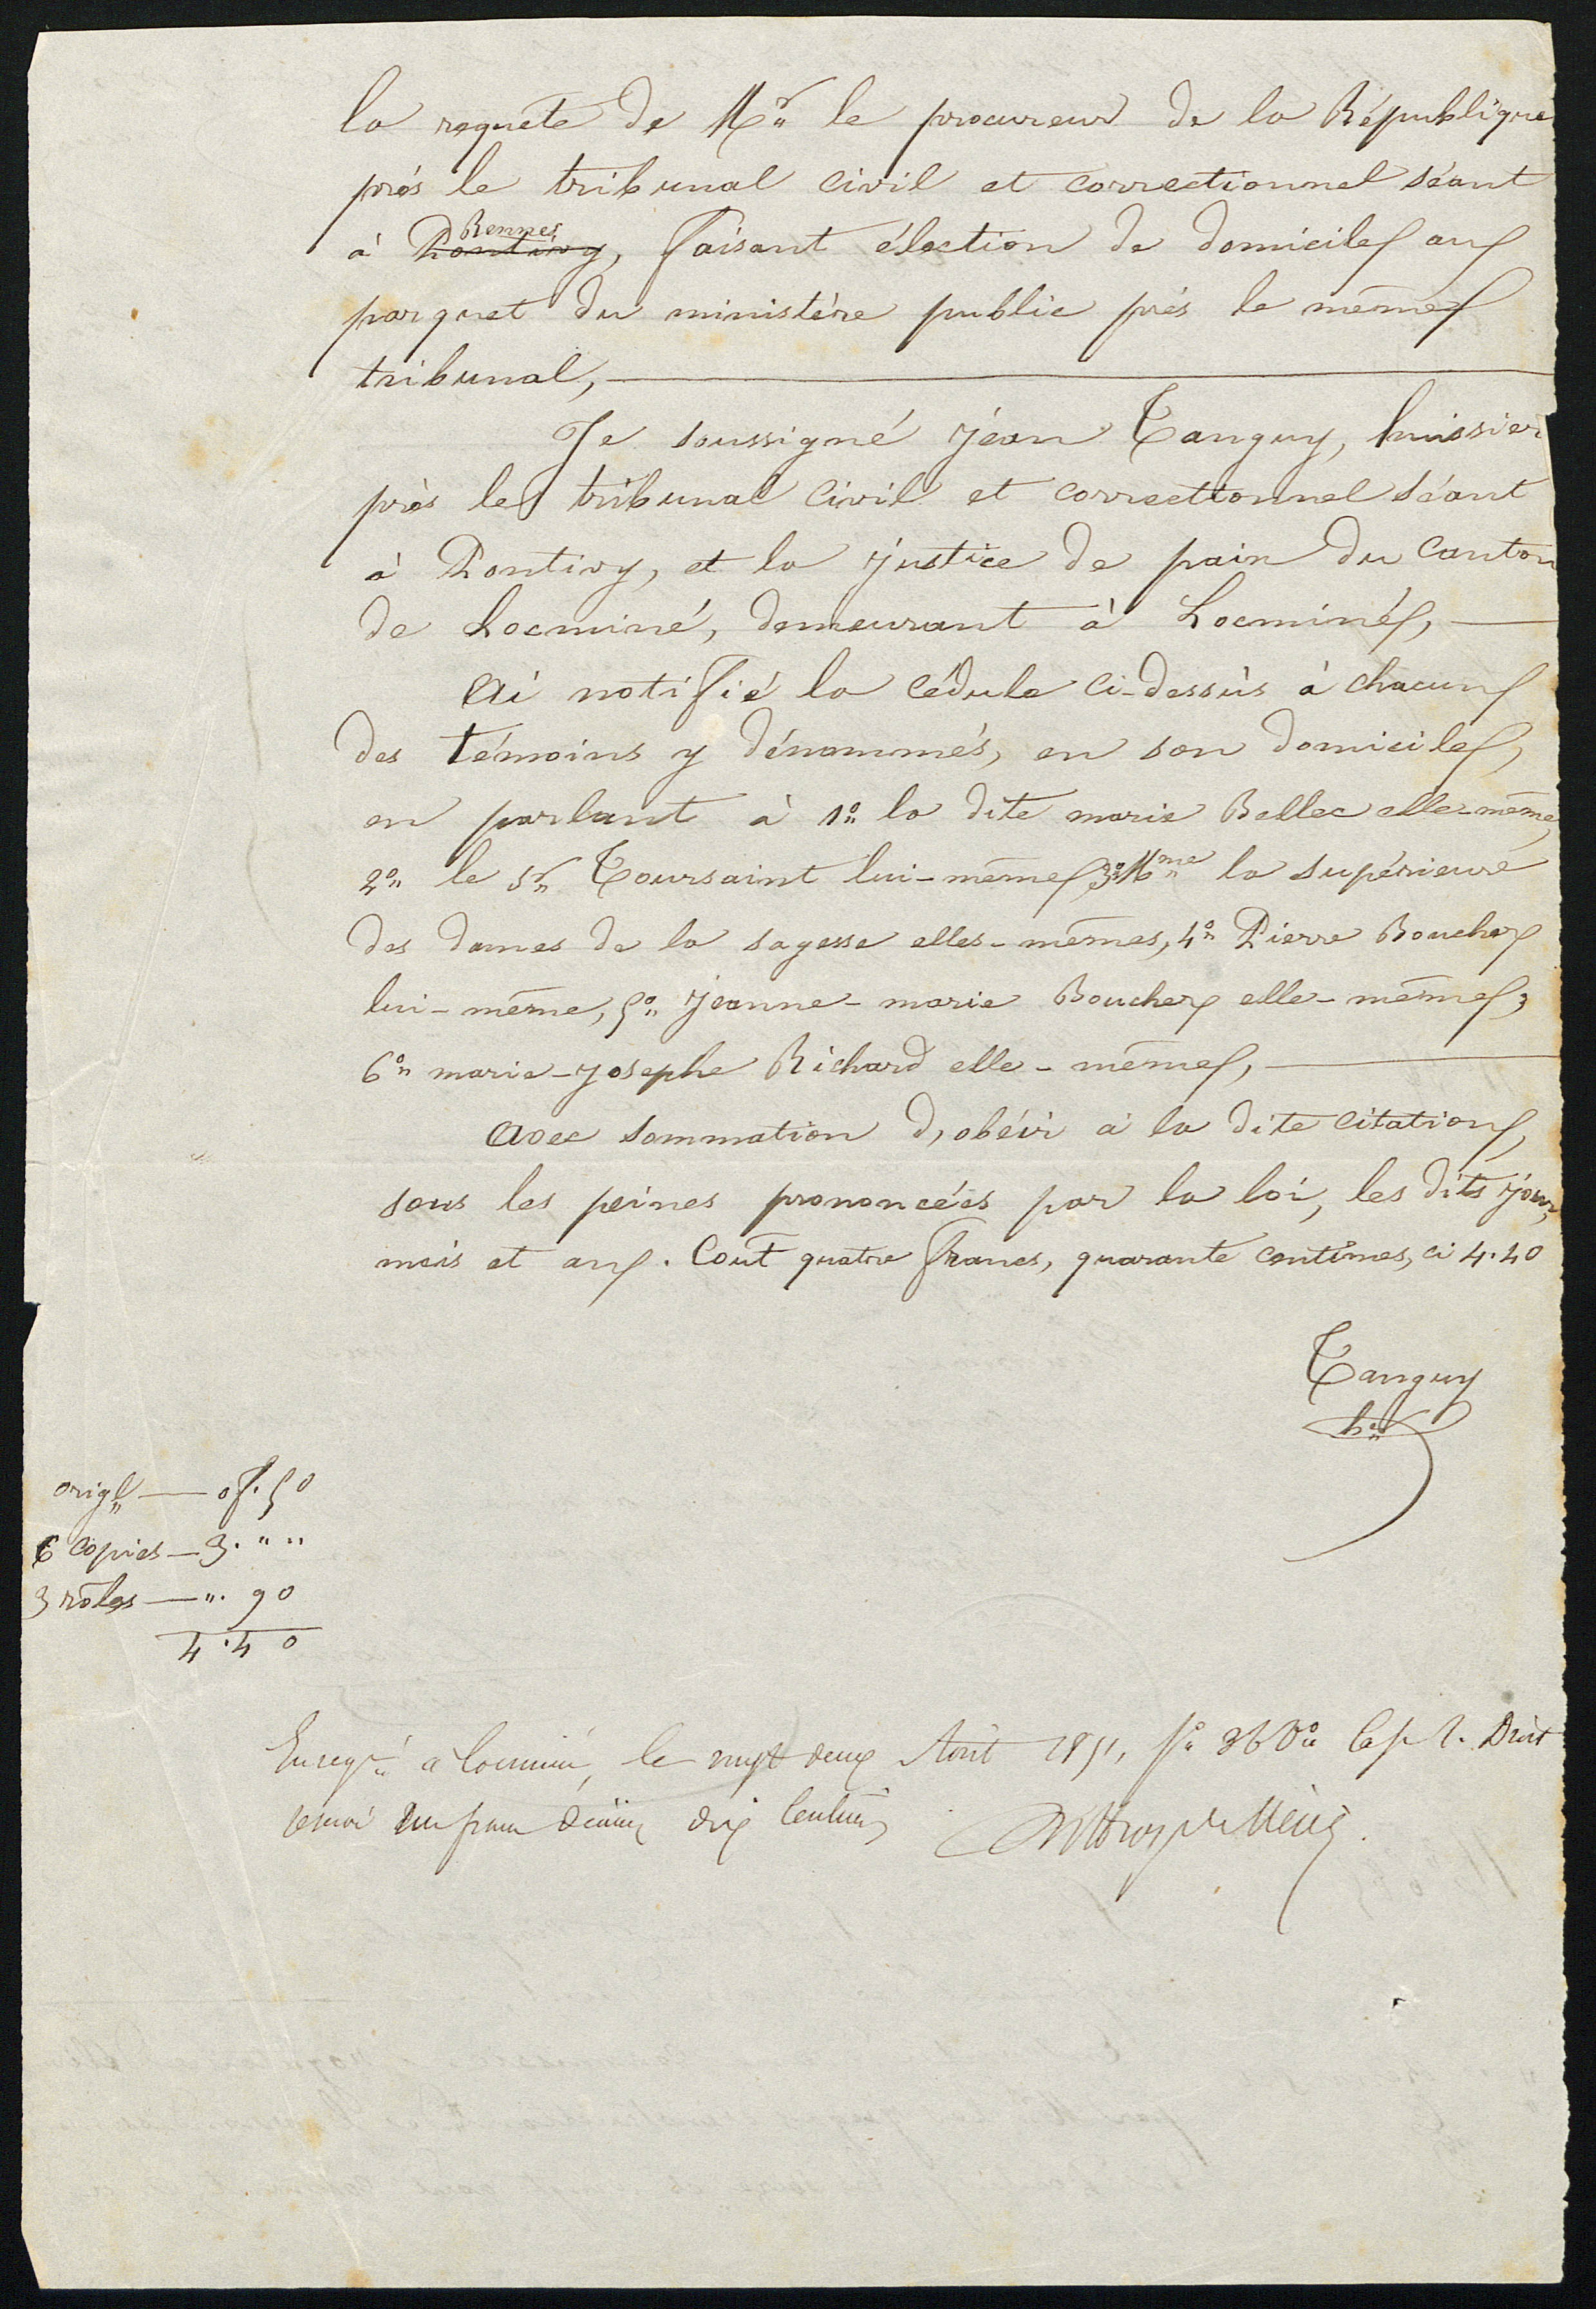 la requête de Mr le procureur de la République
près le tribunal civil et correctionnel séant
Rennes
à Pontivy, faisant élection de domicile au
parquet du ministère public près le même
tribunal,
Je soussigné jean Tanguy, huissier
près le tribunal civil et correctionnel séant
à Pontivy, et la justice de paix du canton
de Locminé, demeurant à Locminé,
Ai notifié la cédule ci-dessus à chacun
des témoins y dénommés, en son domicile,
en parlant à 1o la dite marie Bellec elle-même,
2o le Sr Toursaint lui-même, 3o Mme la supérieure
des dames de la sagesse elles-mêmes, 4o Pierre Boucher
lui-même, 5o jeanne-marie Boucher elle-même,
6o marie-josephe Richard elle-même,
Avec sommation d'obéir à la dite citation,
sous les peines prononcées par la loi, les dits jour,
mois et an. Coût quatre francs, quarante centimes, ci 4.40
Tanguy
hr
origl — 0f.50
6 copies — 3. " "
3 rôles — ". 90
4.40
Enregé à Locminé, le vingt deux Août 1851, fo 36 Vo C. 1. Droit
un franc décime dix centimes